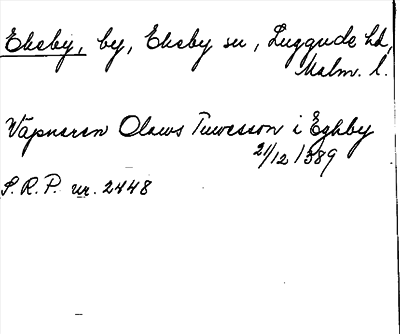 Ekeby, by, Ekeby sn, Luggude hd,
Malm. l.
Väpnaren Olaws Tuwesson i Eghby
21/12 1389
S.R.P. nr. 2448